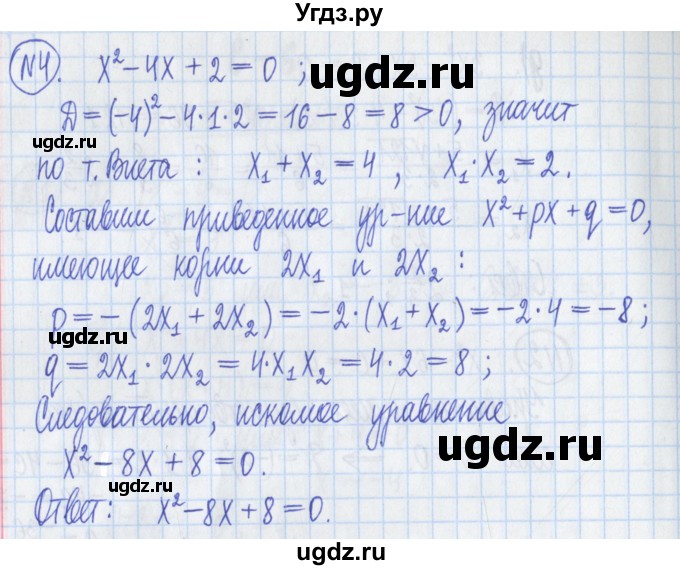 Угдз.ру
№4. x² − 4x + 2 = 0 ;
ugdz.ru
Д = (−4)² − 4·1·2 = 16 − 8 = 8 > 0, значит
ugdz.ru
по т. Виета : x₁ + x₂ = 4 , x₁·x₂ = 2.
Составим приведенное ур-ние x² + px + q = 0,
имеющее корни 2x₁ и 2x₂ :
ugdz.ru
p = −(2x₁ + 2x₂) = −2·(x₁ + x₂) = −2·4 = −8 ;
q = 2x₁·2x₂ = 4·x₁x₂ = 4·2 = 8 ;
Следовательно, искомое уравнение
ugdz.ru
x² − 8x + 8 = 0.
ugdz.ru
Ответ: x² − 8x + 8 = 0.
ugdz.ru